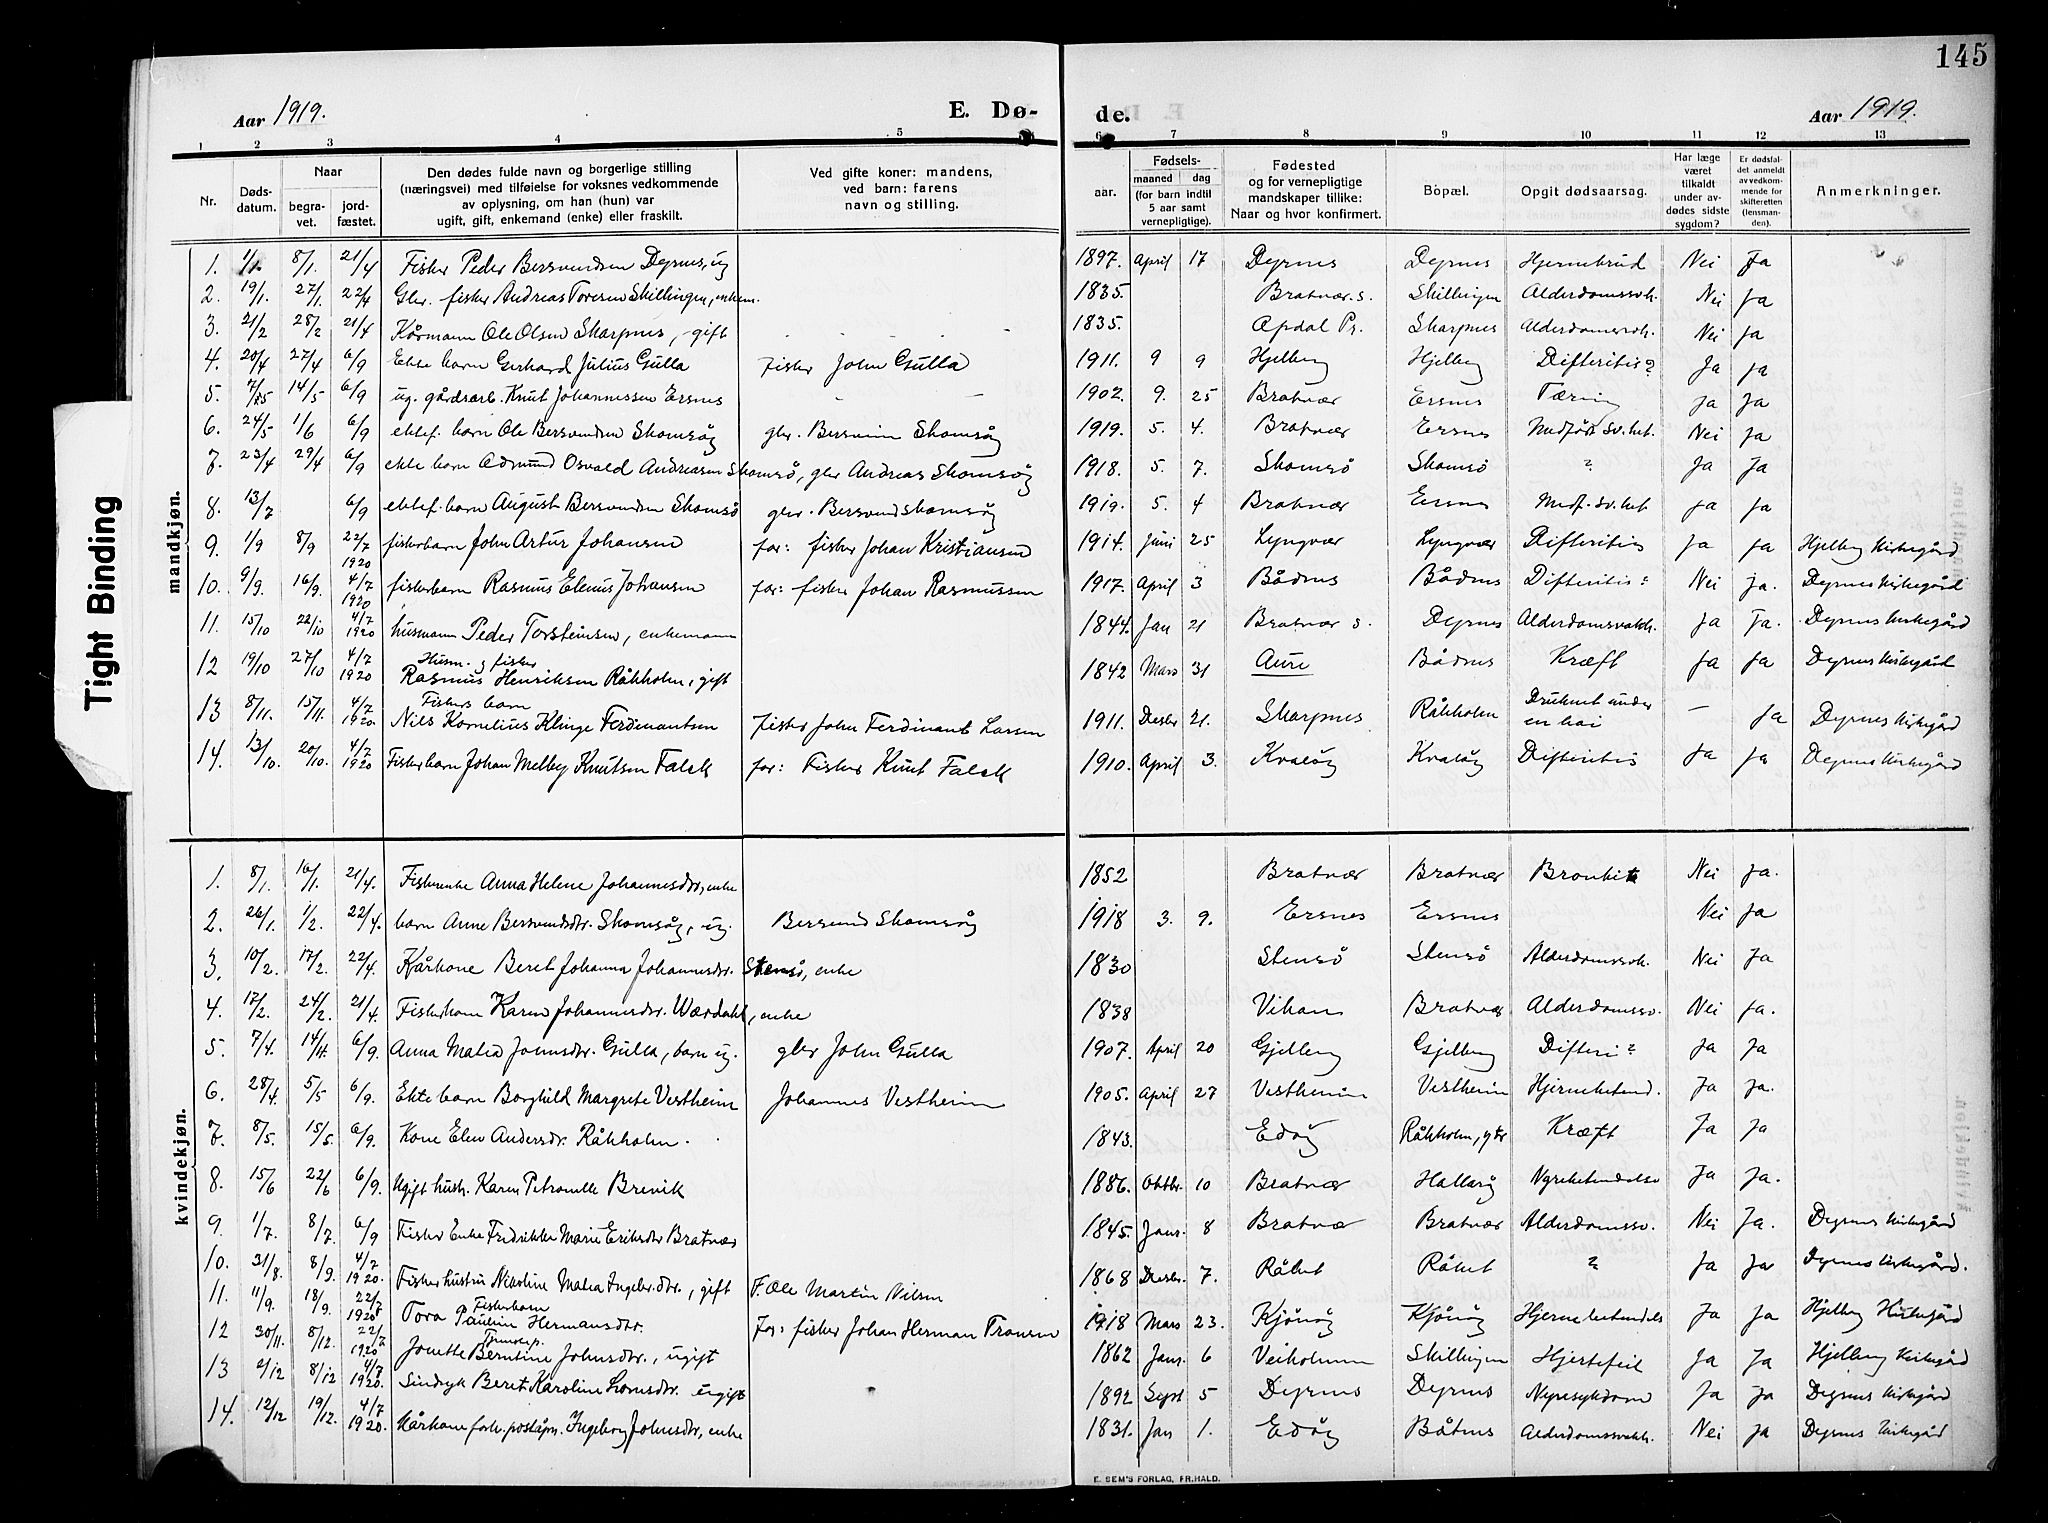 145
Aar 1919. E. Dø- de. Aar 1919.
1 2 3 4 5 6 7 8 9 10 11 12 13
Nr. Døds-datum. Naar begra-vet. jord-fæstet. Den dødes fulde navn og borgerlige stilling (næringsvei) med tilføielse for voksnes vedkommende av oplysning, om han (hun) var ugift, gift, enkemand (enke) eller fraskilt. Ved gifte koner: mandens, ved barn: farens navn og stilling. aar. Fødsels- maaned dag (for barn indtil 5 aar samt vernepligtige). Fødested og for vernepligtige mandskaper tillike: Naar og hvor konfirmert. Bopæl. Opgit dødsaarsag. Har læge været tilkaldt under av-dødes sidste sygdom? Er dødsfal-det anmeldt av vedkom-mende for skifteretten (lensman-den). Anmerkninger.
Tight Binding
mandkjøn.
1. 1/1. 8/1. 21/4 Fisker Peder Bersvendsen Dyrnes, ug 1897. April 17 Dyrnes Dyrnes Hjernebrud Nei Ja
2. 19/1. 27/1. 22/4 Gbr. fisker Andreas Toresen Skillingen, enkem. 1835. Bratvær s. Skillingen Alderdomssvk. Nei Ja
3. 21/2 28/2 21/4 Kårmann Ole Olsen Skarpnes, gift 1835. Opdal Pr. Skarpnes Alderdomssvk. Nei Ja
4. 20/4 27/4 6/9 Ekte barn Gerhard Julius Gulla Fisker John Gulla 1911. 9 9 Hjelben Hjelben Difteritis? Ja Ja
5. 7/5 14/5 6/9 ug. gårdsarb. Knut Johannessen Ersnes 1902. 9. 25 Bratvær Ersnes Tæring Ja Ja
6. 24/5 1/6 6/9 ektef. barn Ole Bersvendsen Skomsøy gbr. Skomsøy 1919. 5. 4. Bratvær Ersnes Medfødt Sv.het. Nei Ja
7. 23/4 29/4 6/9 ekte barn Edmund Osvald Andreasen Skomsø, gbr Andreas Skomsøy 1918. 5. 7. Skomsø Skomsø ? Ja Ja
8. 13/7 6/9 ektef. barn August Bersvendsen Skomsø gbr. Bersvend Skomsøy 1919. 5. 4 Bratvær Ersnes Medf. Sv.het Ja Ja
9. 1/9 8/9 22/7 1920 fiskerbarn John Artur Johansen far: fisker Johan Kristiansen 1914. Juni 25 Lyngvær Lyngvær Difteritis Ja Ja Hjelben Kirkegård
10. 9/9. 16/9. 4/7 1920 fiskerbarn Rasmus Elenius Johansen far: fisker Johan Rasmussen 1917. April 3 Bådnes Bådnes Difteritis? Nei Ja. Dyrnes Kirkegård
11. 15/10 22/10 4/7 1920 husmann Peder Torsteinsen, enkemann 1844. Jan 21 Bratvær s. Dyrnes Alderdomsvakh. Ja Ja. Dyrnes Kirkegård
12 19/10 27/10 4/7 1920 Husm. og fisker Rasmus Henriksen Råkholm, gift 1842 Mars 31 Aure Bådnes Kræft Ja Ja Dyrnes Kirkegård
13 8/11. 15/11. 4/7 1920. Fiskers barn Nils Kornelius Klinge Ferdinantsen Fisker John Ferdinant Larsen 1911. Desbr 21. Skarpnes Råkholm Druknet under en kai – Ja Dyrnes Kirkegård
14. 13/10. 20/10. 4/7 1920 Fiskerbarn Johan Melby Knutsen Falck far: Fisker Knut Falck 1910. April 3. Kvaløy Kvaløy Difteritis Ja Ja Dyrnes Kirkegård
kvindekjøn.
1. 8/1. 16/1. 21/4. Fiskerenke Anna Helene Johannesdtr, enke 1852 Bratvær Bratvær Bronkit Nei Ja.
2. 26/1. 1/2. 22/4. barn Anne Bersvendsdtr. Skomsøy, ug. Bersvend Skomsøy 1918 3. 9. Ersnes Ersnes Nei Ja
3. 10/2. 17/2. 22/4. Kårkone Beret Johanna Johannesdtr. Stensø, enke 1830 Stensø Stensø Alderdomssvk. Nei Ja
4. 17/2. 24/2. 21/4. Fiskerkone Karen Johannesdtr. Wærdahl, enke 1838 Vikan Bratvær Alderdomssv. Nei Ja.
5. 7/4. 14/4. 6/9. Anna Matea Johnsdtr. Gulla, barn ug. gbr John Gulla 1907. April 20 Gjelben Gjelben Difteri? Ja Ja
6. 28/4. 5/5 6/9. Ekte barn Borghild Margrete Vestheim Johannes Vestheim 1905. April 27 Vestheim Vestheim Hjernebetend. Ja Ja.
7. 8/5. 15/5. 6/9. Kone Elen Andersdr. Råkholm. 1843. Edøy Råkholm, ytr Kræft Ja Ja
8. 15/6 22/6 6/9. Ugift hush. Karen Petronelle Brevik 1886. Oktbr. 10 Bratvær Hallarøy Nyrebetendelse Ja Ja.
9. 1/7. 8/7. 6/9 Fisker Enke Fredrikke Marie Eriksdtr Bratvær 1845. Jan. 8 Bratvær Bratvær Alderdomssv. Nei Ja. Dyrnes Kirkegård
10. 31/8. 8/9. 4/7 1920. Fiskerhustru Nikoline Matea Ingebr.dtr., gift F. Ole Martin Nilsen 1868 Desbr. 7. Råket Råket ? Ja Ja Dyrnes Kirkegård.
11. 11/9. 18/9. 22/7 1920 Fiskerbarn Tora Pauline Hermansdtr. Far: fisker Johan Herman Transen 1918 Mars 23. Kjønøy Kjønøy Hjernebetendels Ja Ja Hjelben Kirkegård
12 30/11. 8/12. 22/7 1920 Jonette Berntine Johnsdtr., ugift 1862 Jan. 6 Veiholmen Skillingen Hjertefeil Ja Ja Hjelben Kirkegård
13 2/12 8/12 4/7 1920. Sindsyk Beret Karoline Larsdtr. ugift 1892 Sept 5 Dyrnes Dyrnes Nyresykdom Ja Ja Dyrnes Kirkegård
14. 12/12 19/12. 4/7 1920. Kårkone forh. poståpn. Ingeborg Johnsdtr, enke 1831. Jan 1. Edøy Båtnes Alderdomssvakh. Nei Ja Dyrnes Kirkegård
E. SEM'S FORLAG, FR.HALD.